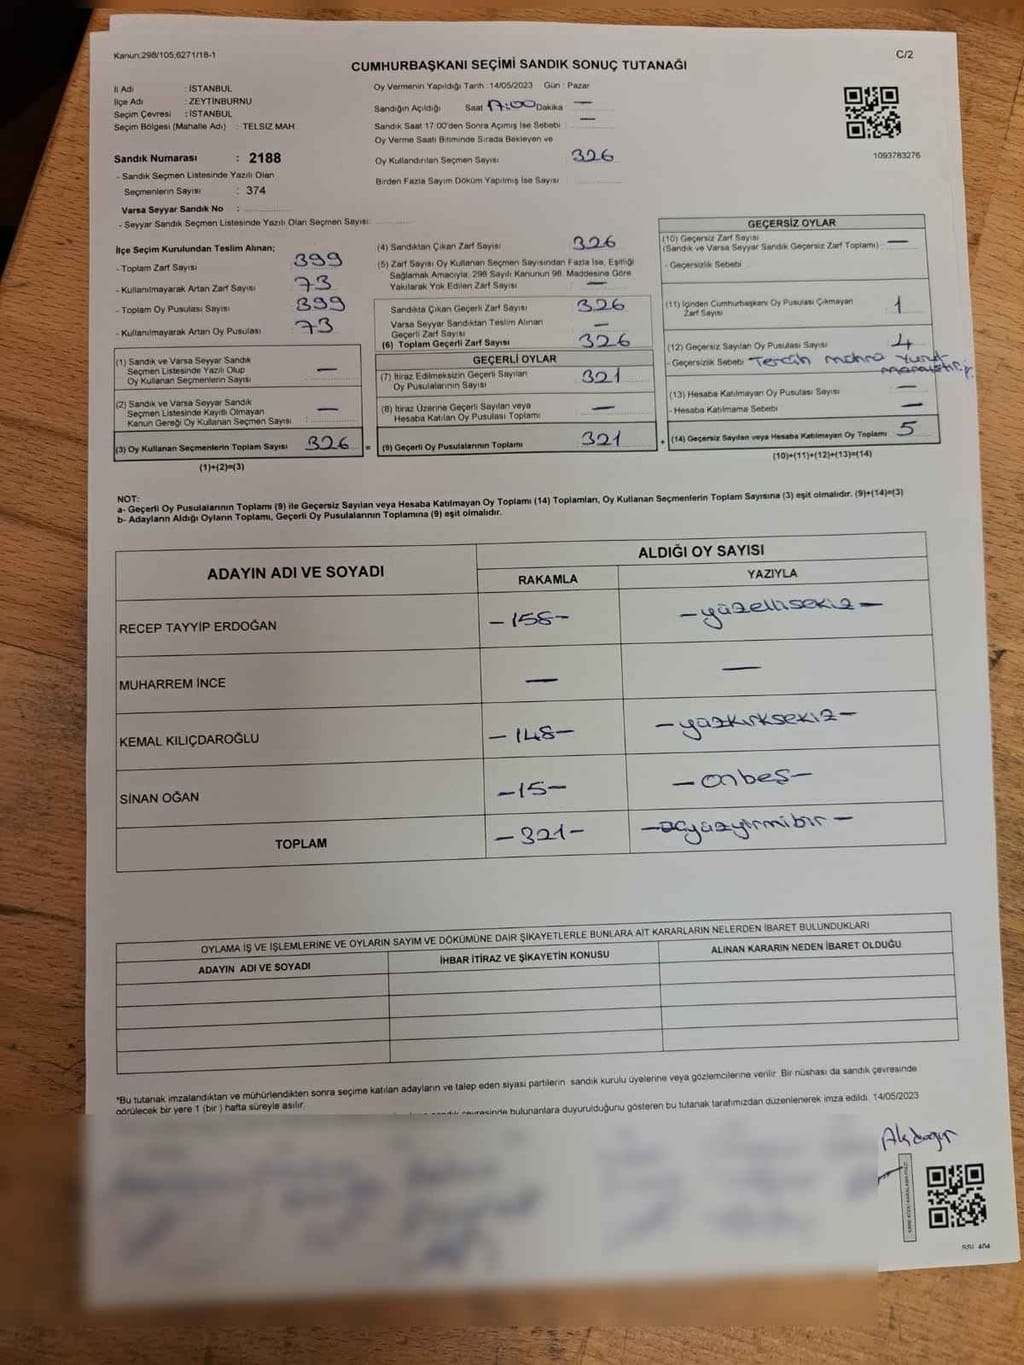 Kanun:298/105;6271/18-1
C/2
CUMHURBAŞKANI SEÇİMİ SANDIK SONUÇ TUTANAĞI
İl Adı : İSTANBUL
İlçe Adı : ZEYTİNBURNU
Seçim Çevresi : İSTANBUL
Seçim Bölgesi (Mahalle Adı) : TELSIZ MAH.
Oy Vermenin Yapıldığı Tarih : 14/05/2023 Gün : Pazar
Sandığın Açıldığı Saat 17:00 Dakika —
Sandık Saat 17:00'den Sonra Açımış İse Sebebi : —
Oy Verme Saati Bitiminde Sırada Bekleyen ve
Oy Kullandırılan Seçmen Sayısı 326
Birden Fazla Sayım Döküm Yapılmış İse Sayısı
1093783276
Sandık Numarası : 2188
- Sandık Seçmen Listesinde Yazılı Olan
Seçmenlerin Sayısı : 374
Varsa Seyyar Sandık No :
- Seyyar Sandık Seçmen Listesinde Yazılı Olan Seçmen Sayısı:
İlçe Seçim Kurulundan Teslim Alınan;
- Toplam Zarf Sayısı 399
- Kullanılmayarak Artan Zarf Sayısı 73
- Toplam Oy Pusulası Sayısı 399
- Kullanılmayarak Artan Oy Pusulası 73
(1) Sandık ve Varsa Seyyar Sandık
Seçmen Listesinde Yazılı Olup
Oy Kullanan Seçmenlerin Sayısı —
(2) Sandık ve Varsa Seyyar Sandık
Seçmen Listesinde Kayıtlı Olmayan
Kanun Gereği Oy Kullanan Seçmen Sayısı —
(3) Oy Kullanan Seçmenlerin Toplam Sayısı 326 =
(1)+(2)=(3)
(4) Sandıktan Çıkan Zarf Sayısı 326
(5) Zarf Sayısı Oy Kullanan Seçmen Sayısından Fazla İse, Eşitliği
Sağlamak Amacıyla, 298 Sayılı Kanunun 98. Maddesine Göre
Yakılarak Yok Edilen Zarf Sayısı —
Sandıkta Çıkan Geçerli Zarf Sayısı 326
Varsa Seyyar Sandıktan Teslim Alınan
Geçerli Zarf Sayısı —
(6) Toplam Geçerli Zarf Sayısı 326
GEÇERLİ OYLAR
(7) İtiraz Edilmeksizin Geçerli Sayılan
Oy Pusulalarının Sayısı 321
(8) İtiraz Üzerine Geçerli Sayılan veya
Hesaba Katılan Oy Pusulası Toplamı —
(9) Geçerli Oy Pusulalarının Toplamı 321 +
GEÇERSİZ OYLAR
(10) Geçersiz Zarf Sayısı
(Sandık ve Varsa Seyyar Sandık Geçersiz Zarf Toplamı) —
- Geçersizlik Sebebi
(11) İçinden Cumhurbaşkanı Oy Pusulası Çıkmayan
Zarf Sayısı 1
(12) Geçersiz Sayılan Oy Pusulası Sayısı 4
- Geçersizlik Sebebi Tercih
(13) Hesaba Katılmayan Oy Pusulası Sayısı —
- Hesaba Katılmama Sebebi —
(14) Geçersiz Sayılan veya Hesaba Katılmayan Oy Toplamı 5
(10)+(11)+(12)+(13)=(14)
NOT:
a- Geçerli Oy Pusulalarının Toplamı (9) ile Geçersiz Sayılan veya Hesaba Katılmayan Oy Toplamı (14) Toplamları, Oy Kullanan Seçmenlerin Toplam Sayısına (3) eşit olmalıdır. (9)+(14)=(3)
b- Adayların Aldığı Oyların Toplamı, Geçerli Oy Pusulalarının Toplamına (9) eşit olmalıdır.
ADAYIN ADI VE SOYADI
ALDIĞI OY SAYISI
RAKAMLA YAZIYLA
RECEP TAYYİP ERDOĞAN -158- -yüzellisekiz-
MUHARREM İNCE — —
KEMAL KILIÇDAROĞLU -148- -yüzkırksekiz-
SİNAN OĞAN -15- -onbeş-
TOPLAM -321- -üçyüzyirmibir-
OYLAMA İŞ VE İŞLEMLERİNE VE OYLARIN SAYIM VE DÖKÜMÜNE DAİR ŞİKAYETLERLE BUNLARA AİT KARARLARIN NELERDEN İBARET BULUNDUKLARI
ADAYIN ADI VE SOYADI İHBAR İTİRAZ VE ŞİKAYETİN KONUSU ALINAN KARARIN NEDEN İBARET OLDUĞU
*Bu tutanak imzalandıktan ve mühürlendikten sonra seçime katılan adayların ve talep eden siyasi partilerin sandık kurulu üyelerine veya gözlemcilerine verilir. Bir nüshası da sandık çevresinde
görülecek bir yere 1 (bir ) hafta süreyle asılır.
sandık çevresinde bulunanlara duyurulduğunu gösteren bu tutanak tarafımızdan düzenlenerek imza edildi. 14/05/2023